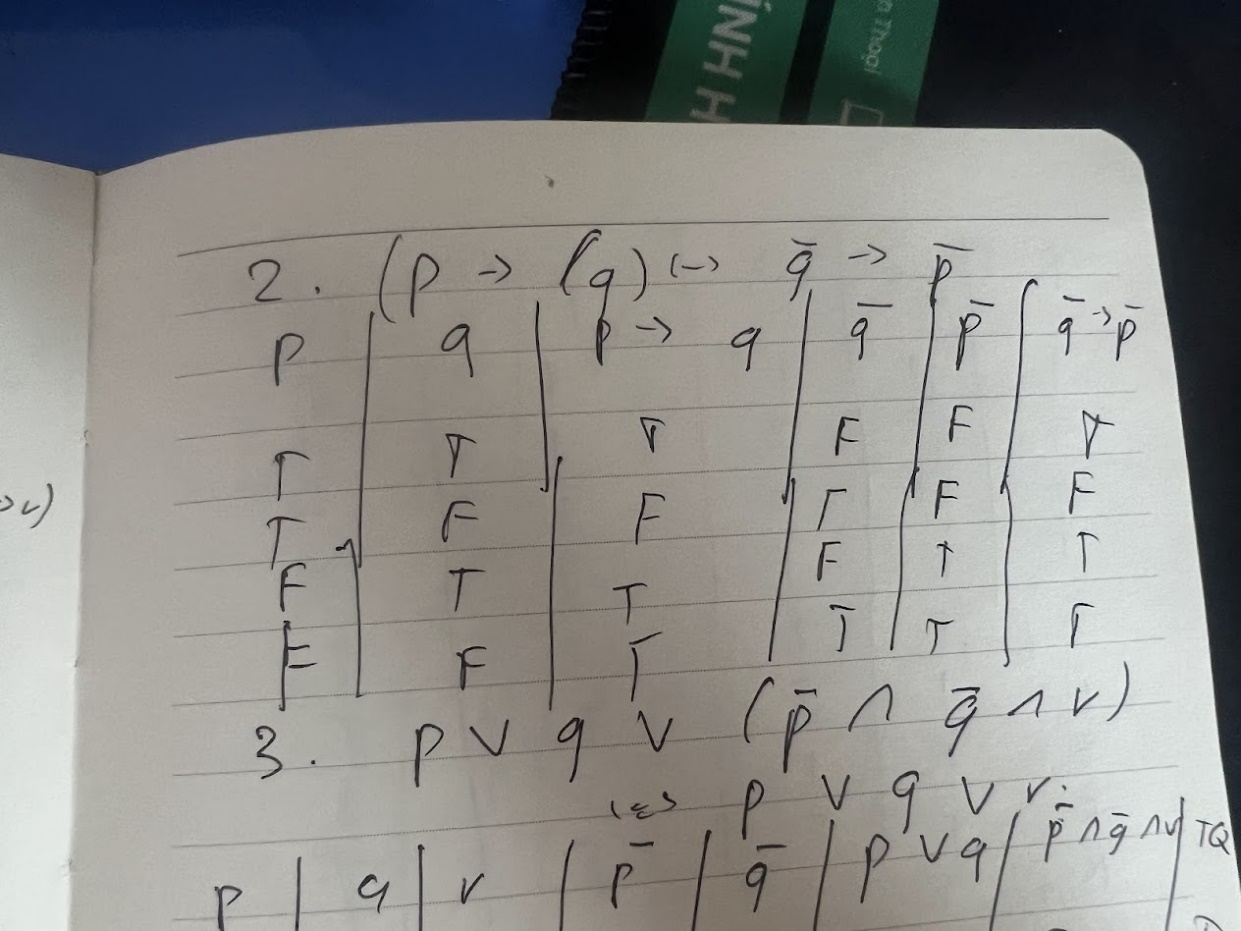 ÍNH H
Thoại
2. (p → (q) ↔ q̄ → p̄
p | q | p → q | q̄ | p̄ | q̄ → p̄
T | T | T | F | F | T
T | F | F | T | F | F
F | T | T | F | T | T
F | F | T | T | T | T
3. p ∨ q ∨ (p̄ ∧ q̄ ∧ r)
⇔ p ∨ q ∨ r.
p | q | r | p̄ | q̄ | p ∨ q | p̄ ∧ q̄ ∧ r | TQ